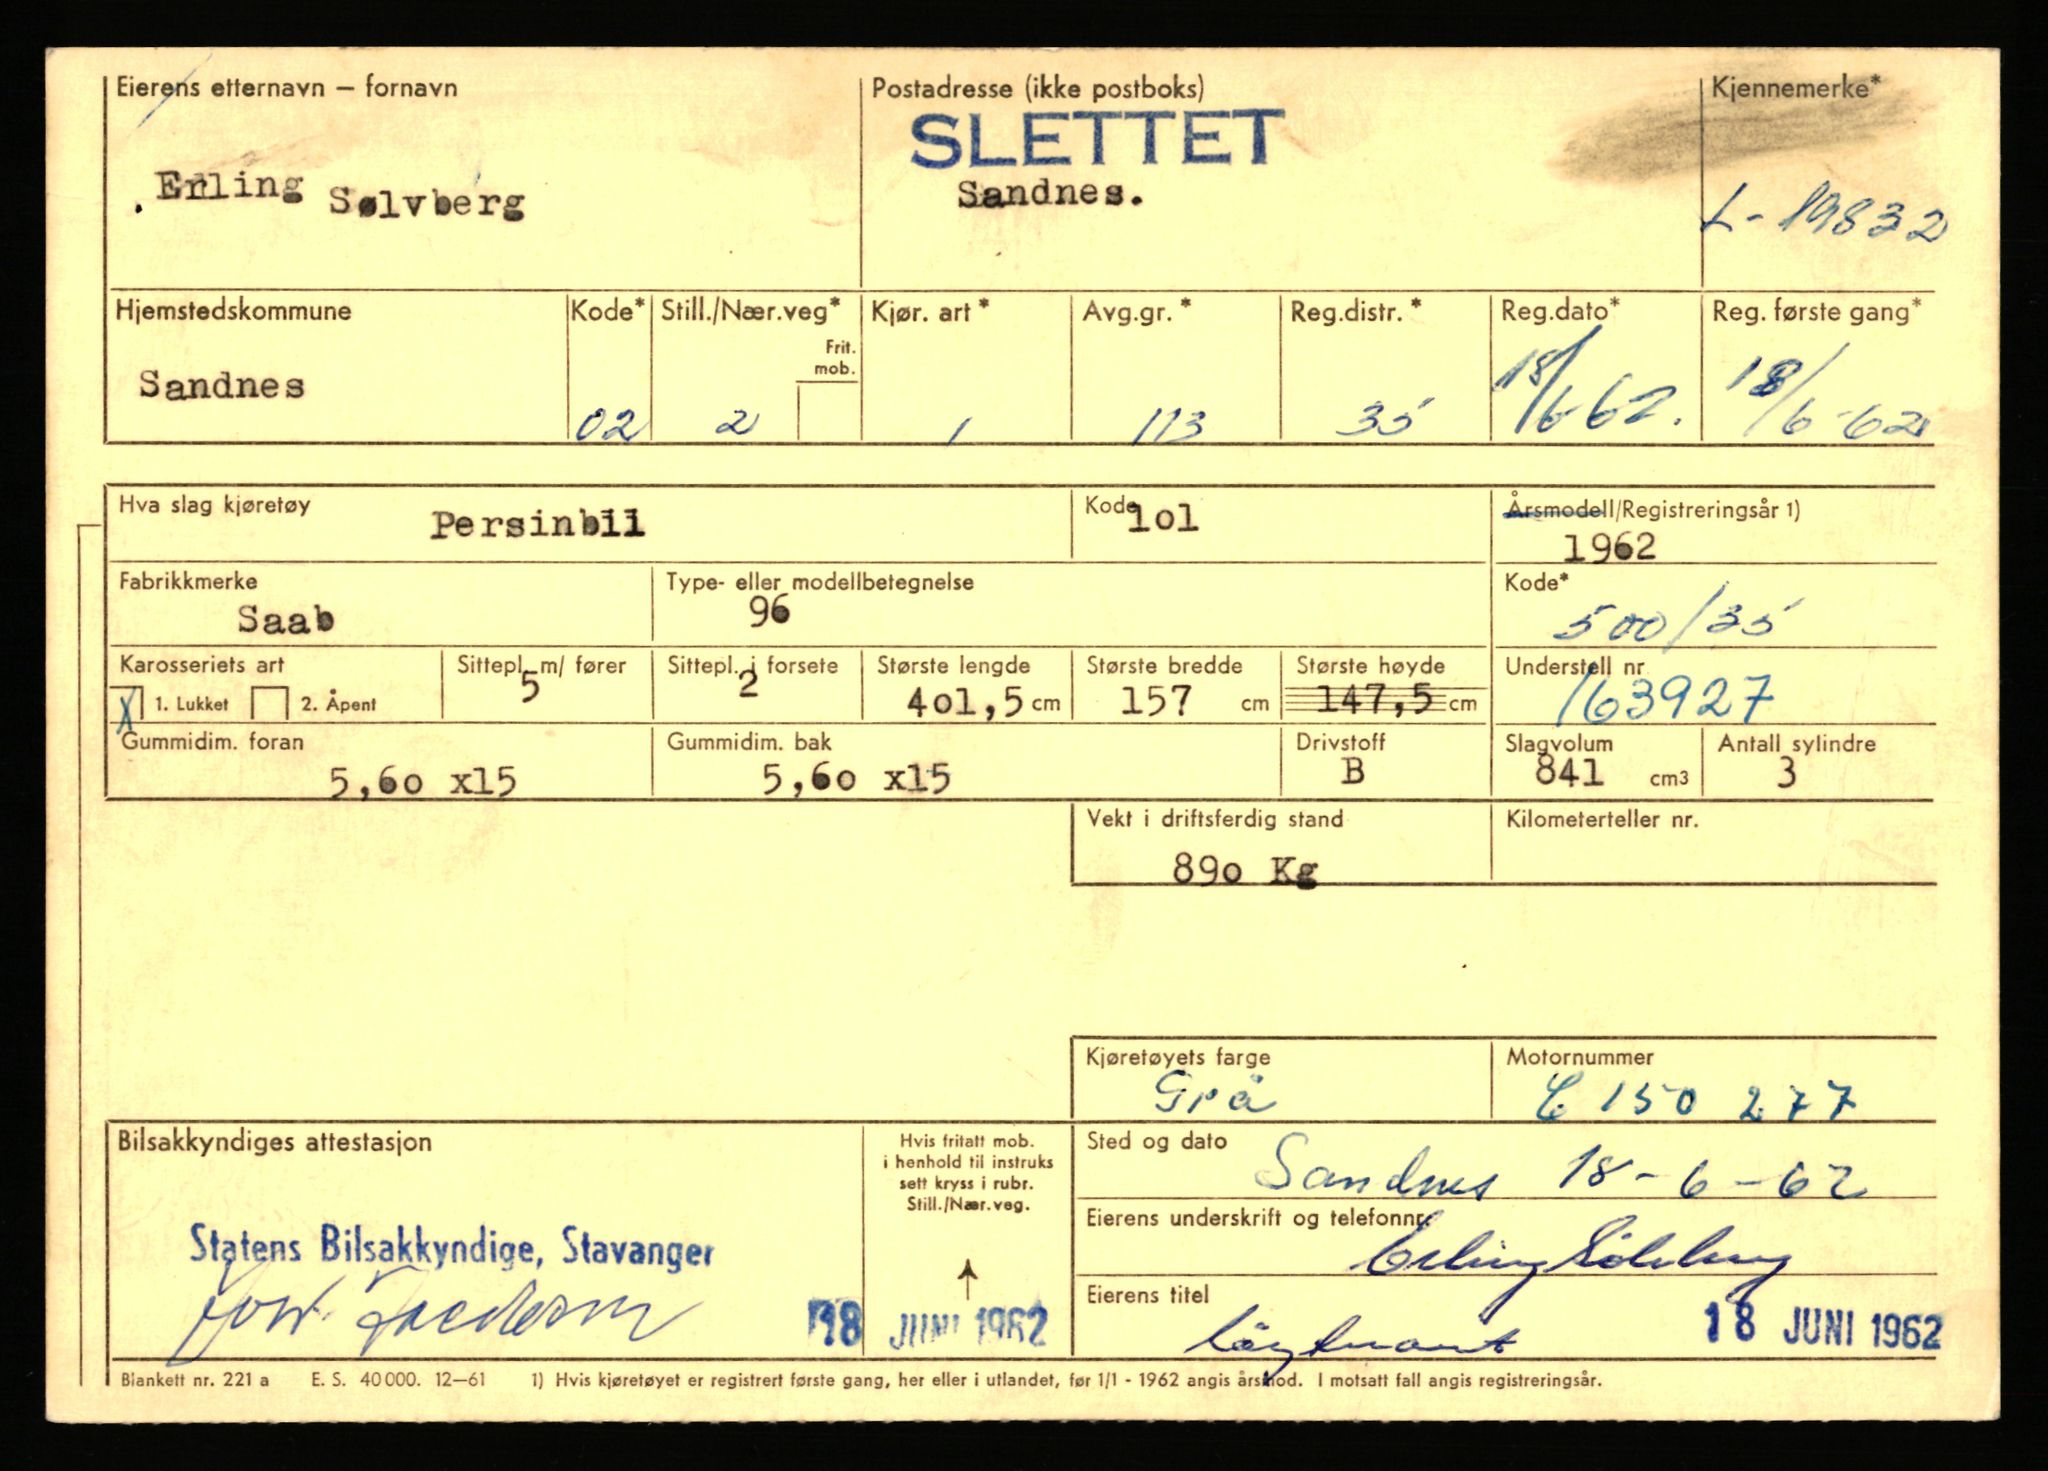 Eierens etternavn – fornavn
Postadresse (ikke postboks)
Kjennemerke*
SLETTET
Erling Sølvberg
Sandnes.
L-19832
Hjemstedskommune
Kode*
Still./Nær.veg*
Frit. mob.
Kjør. art *
Avg.gr. *
Reg.distr. *
Reg.dato*
Reg. første gang*
Sandnes
02
2
1
113
35
18/6-62.
18/6-62
Hva slag kjøretøy
Persinbil
Kode
101
Årsmodell/Registreringsår 1)
1962
Fabrikkmerke
Saab
Type- eller modellbetegnelse
96
Kode*
500/35
Karosseriets art
X 1. Lukket
2. Åpent
Sittepl. m/ fører
5
Sittepl. i forsete
2
Største lengde
401,5 cm
Største bredde
157 cm
Største høyde
147,5 cm
Understell nr.
163927
Gummidim. foran
5,60 x15
Gummidim. bak
5,60 x15
Drivstoff
B
Slagvolum
841 cm3
Antall sylindre
3
Vekt i driftsferdig stand
890 Kg
Kilometerteller nr.
Kjøretøyets farge
Grå
Motornummer
C 150 277
Bilsakkyndiges attestasjon
Hvis fritatt mob.
i henhold til instruks
sett kryss i rubr.
Still./Nær.veg.
Sted og dato
Sandnes 18-6-62
Statens Bilsakkyndige, Stavanger
18 JUNI 1962
Eierens underskrift og telefonnr.
Erling Sølvberg
Eierens titel
Løytnant
18 JUNI 1962
Blankett nr. 221 a E. S. 40 000. 12–61 1) Hvis kjøretøyet er registrert første gang, her eller i utlandet, før 1/1 - 1962 angis årsmod. I motsatt fall angis registreringsår.